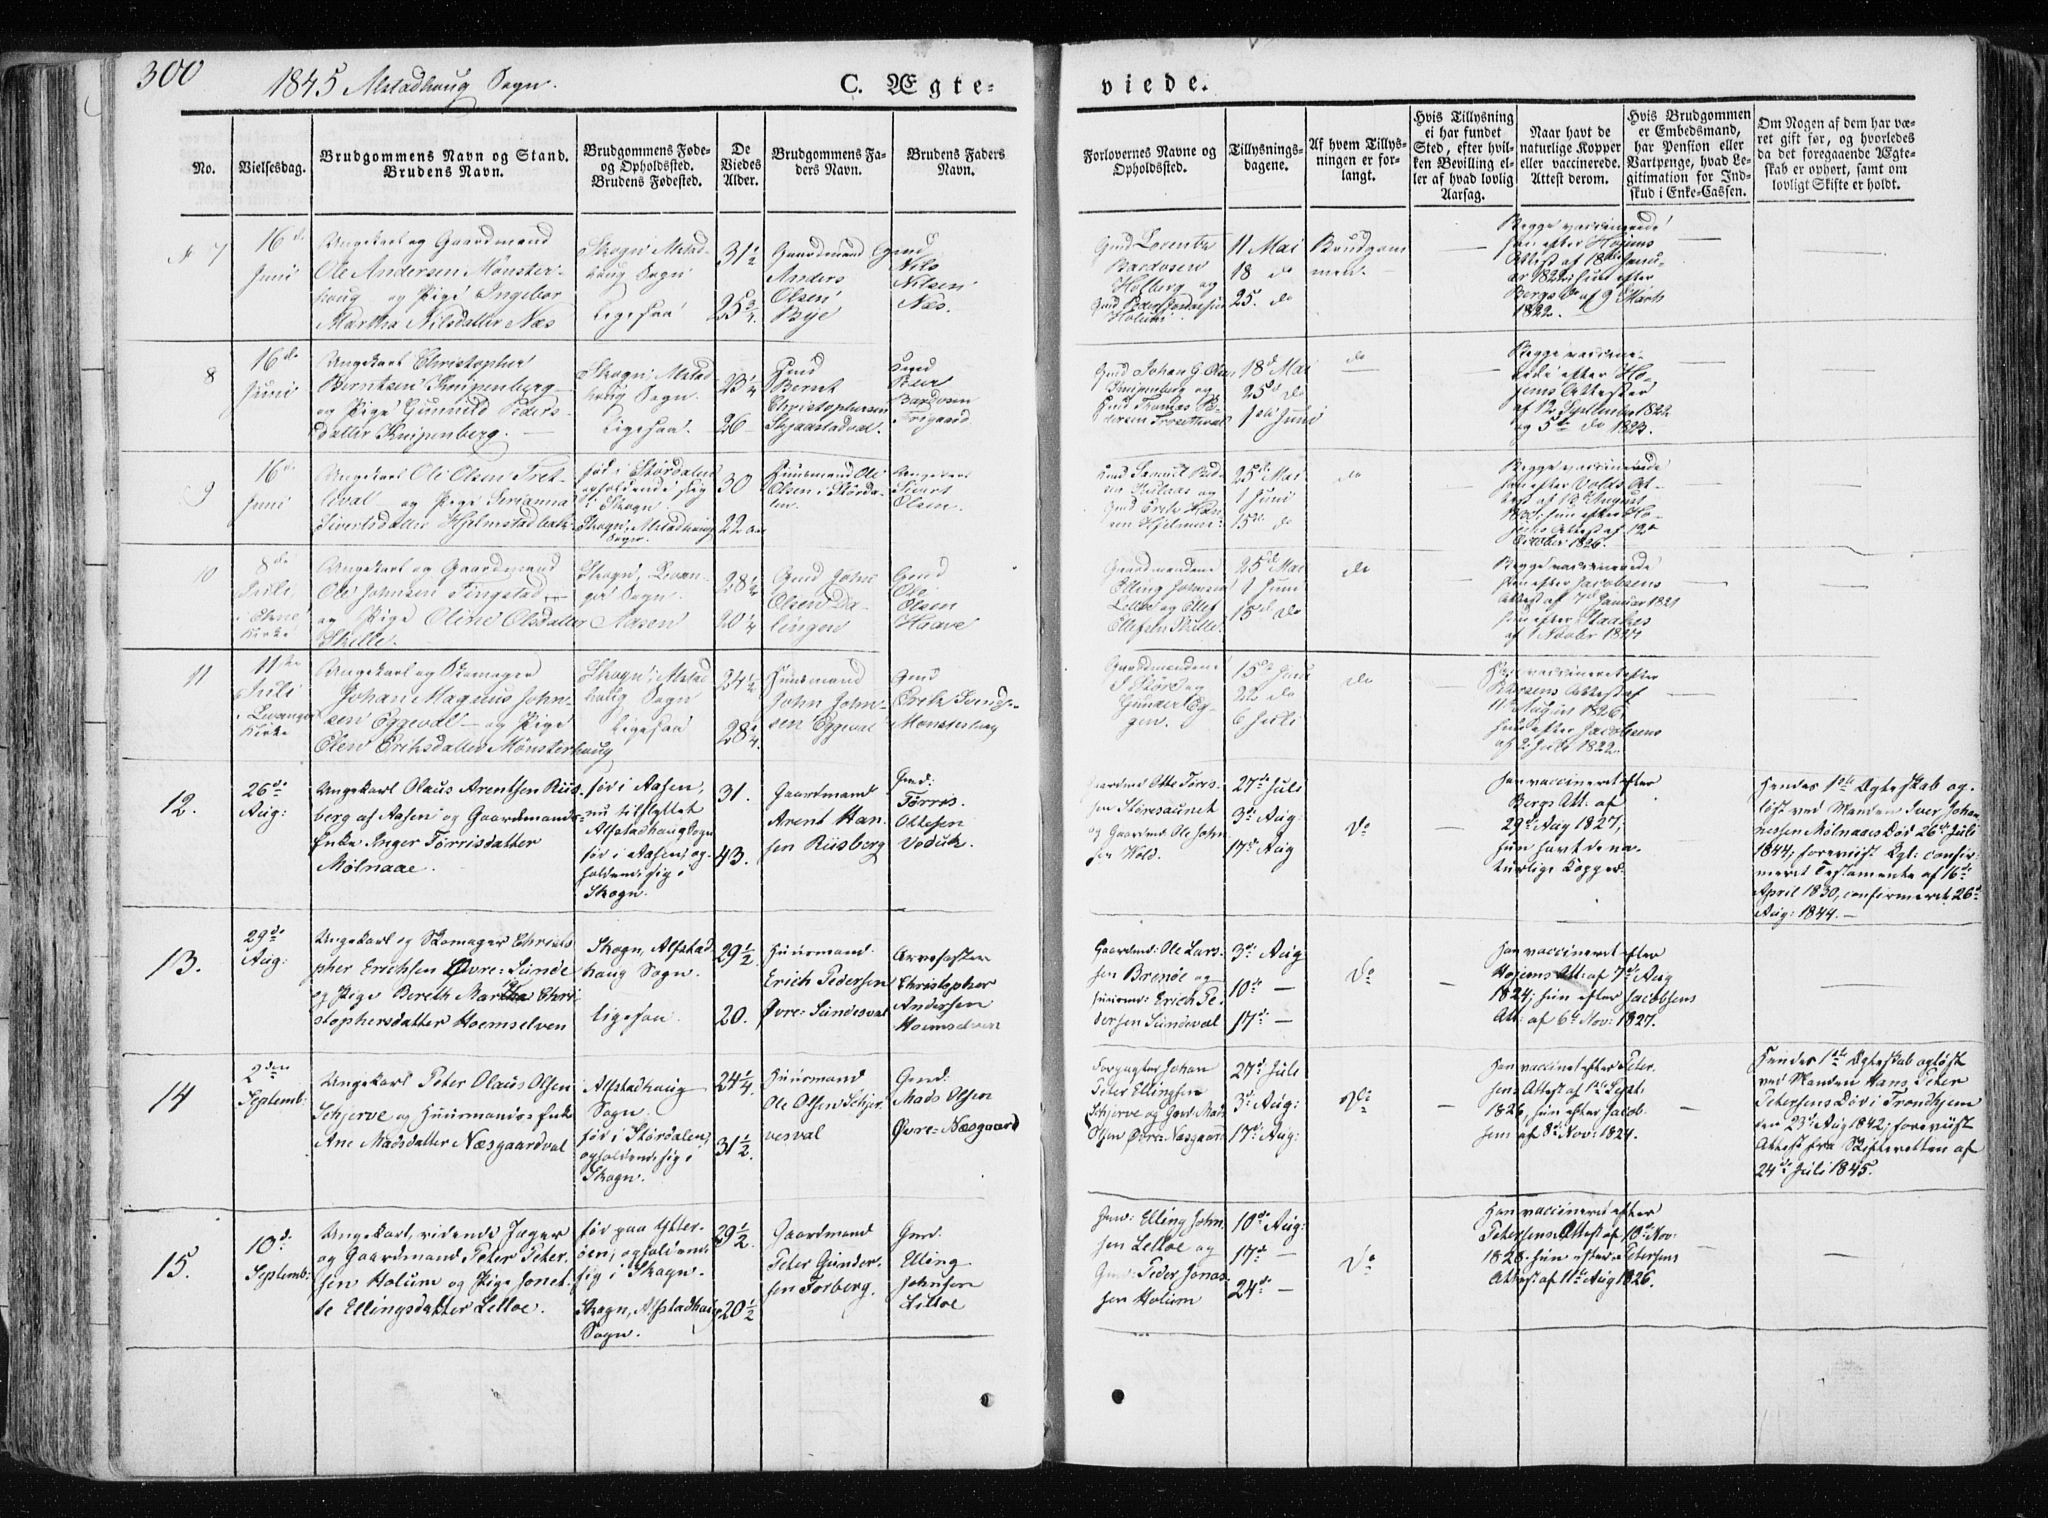 300
1845 Alstadhaug Sogn.
C. Ægte-
viede.
No.
Vielsesdag.
Brudgommens Navn og Stand.
Brudens Navn.
Brudgommens Føde-
og Opholdssted.
Brudens Fødested.
De
Viedes
Alder.
Brudgommens Fa-
ders Navn.
Brudens Faders
Navn.
Forlovernes Navne og
Opholdssted.
Tillysnings-
dagene.
Af hvem Tillys-
ningen er for-
langt.
Hvis Tillysning
ei har fundet
Sted, efter hvil-
ken Bevilling el-
ler af hvad lovlig
Aarsag.
Naar havt de
naturlige Kopper
eller vaccinerede.
Attest derom.
Hvis Brudgommen
er Embedsmand,
har Pension eller
Vartpenge, hvad Le-
gitimation for Ind-
skud i Enke-Cassen.
Om Nogen af dem har væ-
ret gift før, og hvorledes
da det foregaaende Ægte-
skab er ophørt, samt om
lovligt Skifte er holdt.
7
16de
Juni
Ungekarl og Gaardmand
Ole Andersen Mønster-
haug og Pige Ingebor
Martha Nilsdatter Næs
Skogn, Alstad-
haug Sogn
Ligesaa
31 1/2
25 3/4
Gaardmand
Anders
Olsen
Bye
Gmd
Nils
Nilsen
Næs.
Gmd Lorents
Bardosen
Holberg og
Holum
11 Mai
18 do
25. do
Brudgom
men
Begge vaccinerede
han efter Højems
Attest af 18de Janu-
ar 1822; hun efter
Bergs do af 9 Marts
1822.
8
16de
Juni
Ungekarl Christopher
Berntsen Knipenberg
og Pige Gunnild Peders-
datter Knipenberg.
Skogn, Alstad
haug Sogn.
Ligesaa.
23 1/4
26
Bernt
Christophersen
Skjaastadval.
Peer
Bardosen
Gmd Johan G.
Knipenberg og
Thomas Pe-
dersen
18d Mai
25d do
1ste Juni
do
Begge vaccine-
rede efter Ho-
jems Attester
af 12 September 1822
og 5te do 1823.
9
16de
Juni
Ungekarl Ole Olsen Tret-
val og Pige Serianna
Sivertsdatter Hjelmstadbak-
fød i Størdalen
opholdende sig
i Skogn
Skogn, Alstadhaug
Sogn.
30
22
Huusmand Ole
Olsen i Størda-
len.
Ungekarl
Sivert
Olsen.
25d Mai
1 Juni
15d
do
Begge vaccinerede
han efter Volds At-
test af 13 August
hun efter Ho-
jems Attest af 12
October 1826.
10
8de
Juli
i Ekne
Kirke
Ungekarl og Gaardmand
Ole Johnsen Tingstad
og Pige Oline Olsdatter
Skelle.
Skogn, Levan-
ger Sogn.
Aasen
28 1/2
20 1/4
Gmd John
Olsen
Gmd
Ole
Olsen
Haave
Gaardmændene
Elling Johnsen
Lelloe og Ellef
Ellefsen Skelle.
25d Mai
1 Juni
15d do
do
Begge vaccinerede
han efter Jacobsens
Attest af 7d Januar 1821
hun efter
11
11te
Juli
i Levanger
Kirke
Ungekarl og Skomager
Johan Magnus John-
sen Eggeval og Pige
Elen Eriksdatter Mønsterhaug
Skogn, Alstad
haug Sogn
Ligesaa
34 1/2
28 1/4.
Huusmand
John John-
sen Eggeval
Gmd
Erik
Mønsterhaug
Gaardmændene
Gunder Eg-
gen.
15de Juni
22 do
6 Juli
do
Han vaccineret efter
Attest af
11te August 1826,
hun efter Jacobsens
af 2 Juli 1822.
12.
26de
Aug:
Ungekarl Olaus Arentsen Riis-
berg af Aasen og Gaardmands-
Enke Inger Tørrisdatter
Mølnaae.
fød i Aasen,
nu tilflyttet
Alstadhaug Sogn
fød i Aasen, op-
holdende sig i
Skogn.
31.
43.
Gaardmand
Arent Han-
sen Riisberg
Gmd:
Tørris
Ottesen
Voduk.
Gaardmd Otte Tørris-
sen Størsaunet
og Gaardmd: Ole John-
sen Wold.
27de Juli
3de Aug:
17de Aug
Do
Han vaccineret efter
Bergs Att: af
29d Aug 1827;
hun havt de na-
turlige Kopper
Hendes 1ste Ægteskab op-
løst ved Manden Iver Johan-
nessen Mølnaaes Død 26de Juli
1844, foreviist Kgl: confir-
meret Testamente af 16de
April 1830, confirmeret 26d
Aug: 1844. –
13.
29de
Aug:
Ungekarl og Skomager Christo-
pher Erichsen Øvre-Sunde
og Pige Bereth Martha Chri-
stophersdatter Hoemselven
Skogn, Alstad-
haug Sogn.
ligesaa.
29 1/2
20.
Huusmand
Erich Pedersen
Øvre-Sundesval
Arvefæster
Christopher
Andersen
Hoemselven
Gaardmd: Ole Lars-
sen Brenøe og
Huusmd: Erich Pe-
dersen Sundeval
3de Aug
10de –
17de –
Do
Han vaccineret efter
Hojems Att: af 7de Aug
1824; hun efter Jacobsens
Att: af 6d Nov: 1827.
14
2den
Septemb:
Ungekarl Peter Olaus Olsen
Schjerve og Huusmands Enke
Ane Madsdatter Næsgaardval
Alstadhaug
Sogn.
fød i Størdalen,
opholdende sig i
Skogn.
24 1/4
31 1/2.
Huusmand
Ole Olsen Schjer-
vesval
Gmd:
Mads Olsen
Øvre-Næsgaard
Forpagter Johan
Peter Ellingsen
Schjerve og Gmd Mads
Olsen Øvre-Næsgaard
27d Juli
3de Aug:
17de Aug:
Do
Han vaccinet efter Peter-
sens Attest af 1ste Sept:
1826, hun efter Jacob-
sens af 8de Nov: 1824.
Hendes 1ste Ægteskab opløst
ved Manden Hans Peter
Petersens Død i Trondhjem
den 23d Aug 1842, foreviist
Attest fra Skifteretten af
24de Juli 1845.
15.
10de
Septemb:
Ungekarl, ridende Jæger
og Gaardmand Peter Peter-
sen Holum og Pige Jonet-
te Ellingsdatter Lelloe.
fød paa Ytter-
øen, opholdende
sig i Skogn.
Skogn, Alstadhaug
Sogn.
29 1/2
20 1/2
Gaardmand
Peter Gunder-
sen Forberg.
Gmd:
Elling
Johnsen
Lelloe
Gmd: Elling John-
sen Lelloe og
Gmd: Peder Jonas-
sen Holum
10de Aug:
17de –
24de –
Do
Han vaccineret efter
Petersens Attest af 10de Nov:
1828. hun efter Petersens
Attest af 11te Aug 1826.